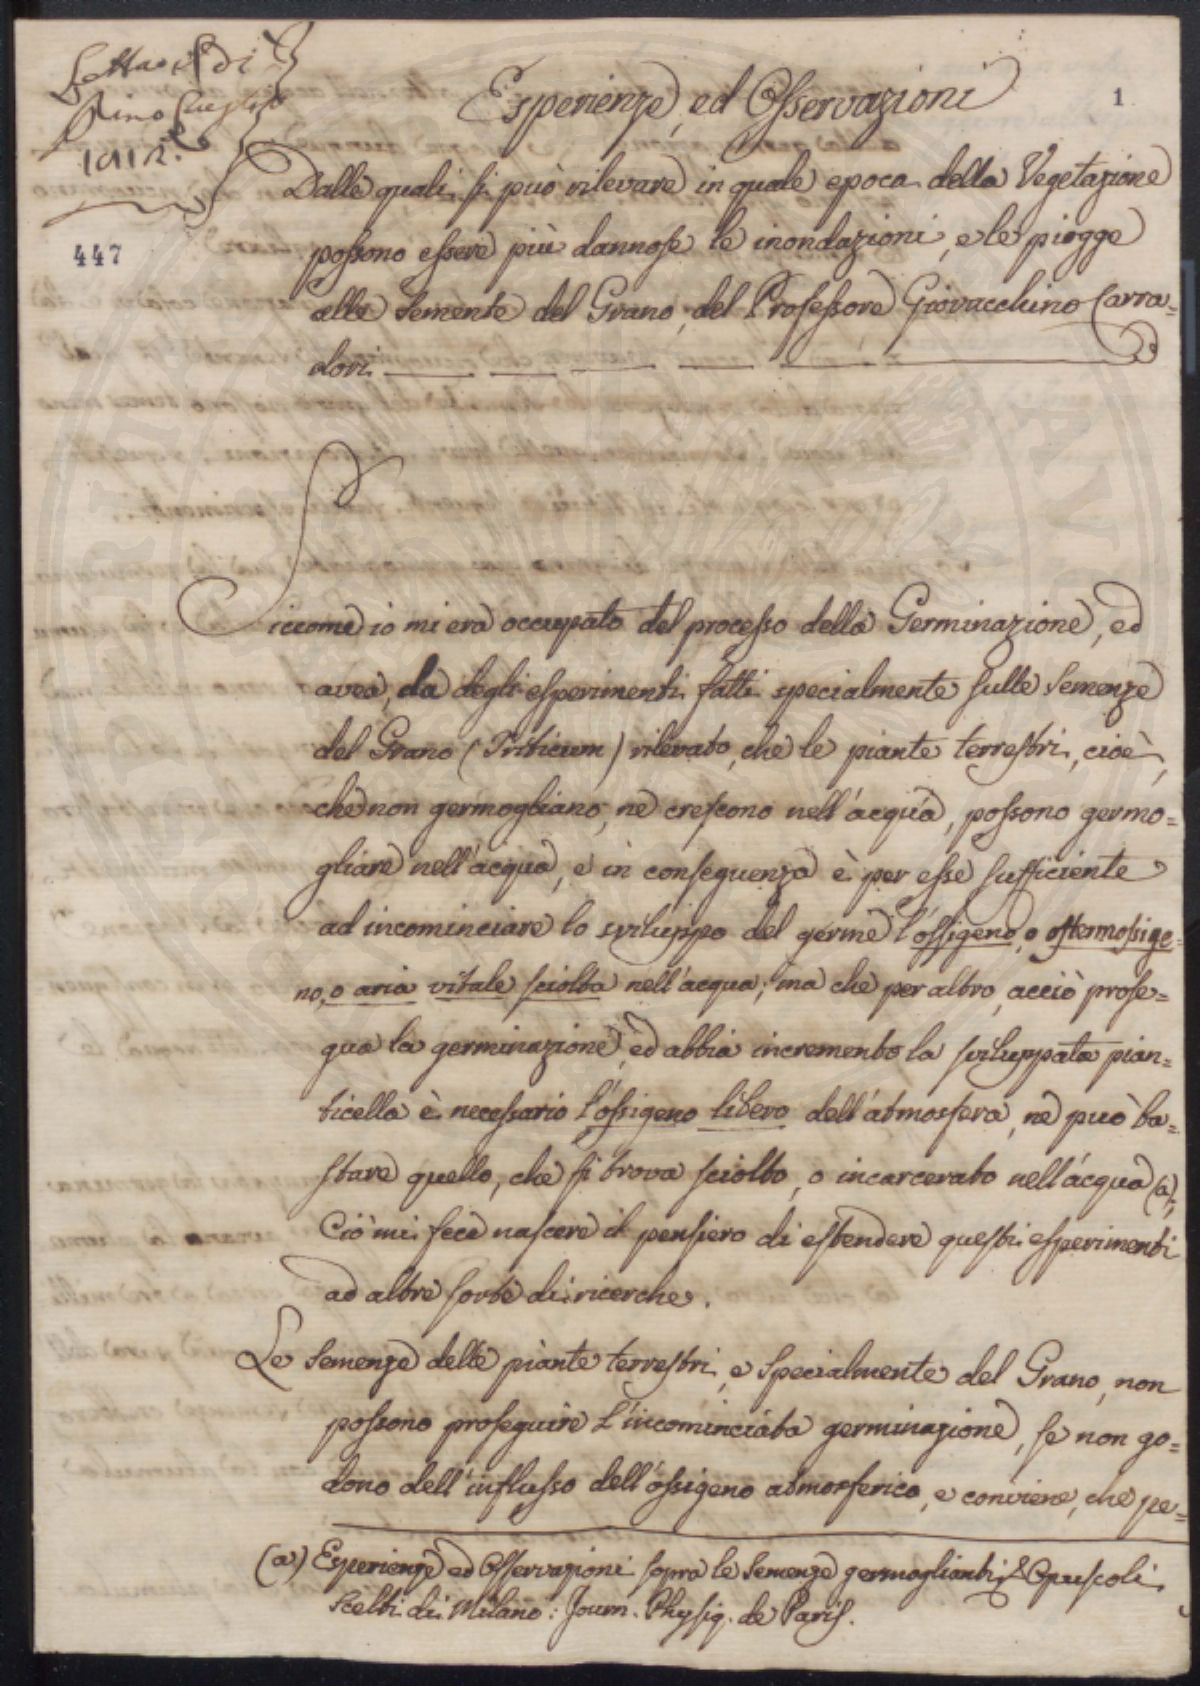 Letta il di
Primo Luglio
1812.
447
1
Esperienze, ed Osservazioni
Dalle quali si può rilevare in quale epoca della Vegetazione
possono essere più dannose le inondazioni, e le piogge
alla semente del Grano, del Professore Giovacchino Carra=
dori
Siccome io mi era occupato del processo della Germinazione, ed
avea, da degli esperimenti fatti specialmente sulle semenze
del Grano (Triticum) rilevato, che le piante terrestri, cioè,
che non germogliano, nè crescono nell'acqua, possono germo=
gliare nell'acqua, e in conseguenza è per esse sufficiente
ad incominciare lo sviluppo del germe l'ossigeno, o termossige=
no, o aria vitale sciolta nell'acqua; ma che per altro, acciò prose=
gua la germinazione, ed abbia incremento la sviluppata pian=
ticella è necessario l'ossigeno libero dell'atmosfera, nè può ba=
stare quello, che si trova sciolto, o incarcerato nell'acqua (a);
Ciò mi fece nascere il pensiero di estendere questi esperimenti
ad altre sorte di ricerche.
Le semenze delle piante terrestri, e specialmente del Grano, non
possono proseguire l'incominciata germinazione, se non go=
dono dell'influsso dell'ossigeno atmosferico, e conviene, che pe=
(a) Esperienze ed Osservazioni sopra le semenze germoglianti, Opuscoli
Scelti di Milano: Journ. Physiq. de Paris.